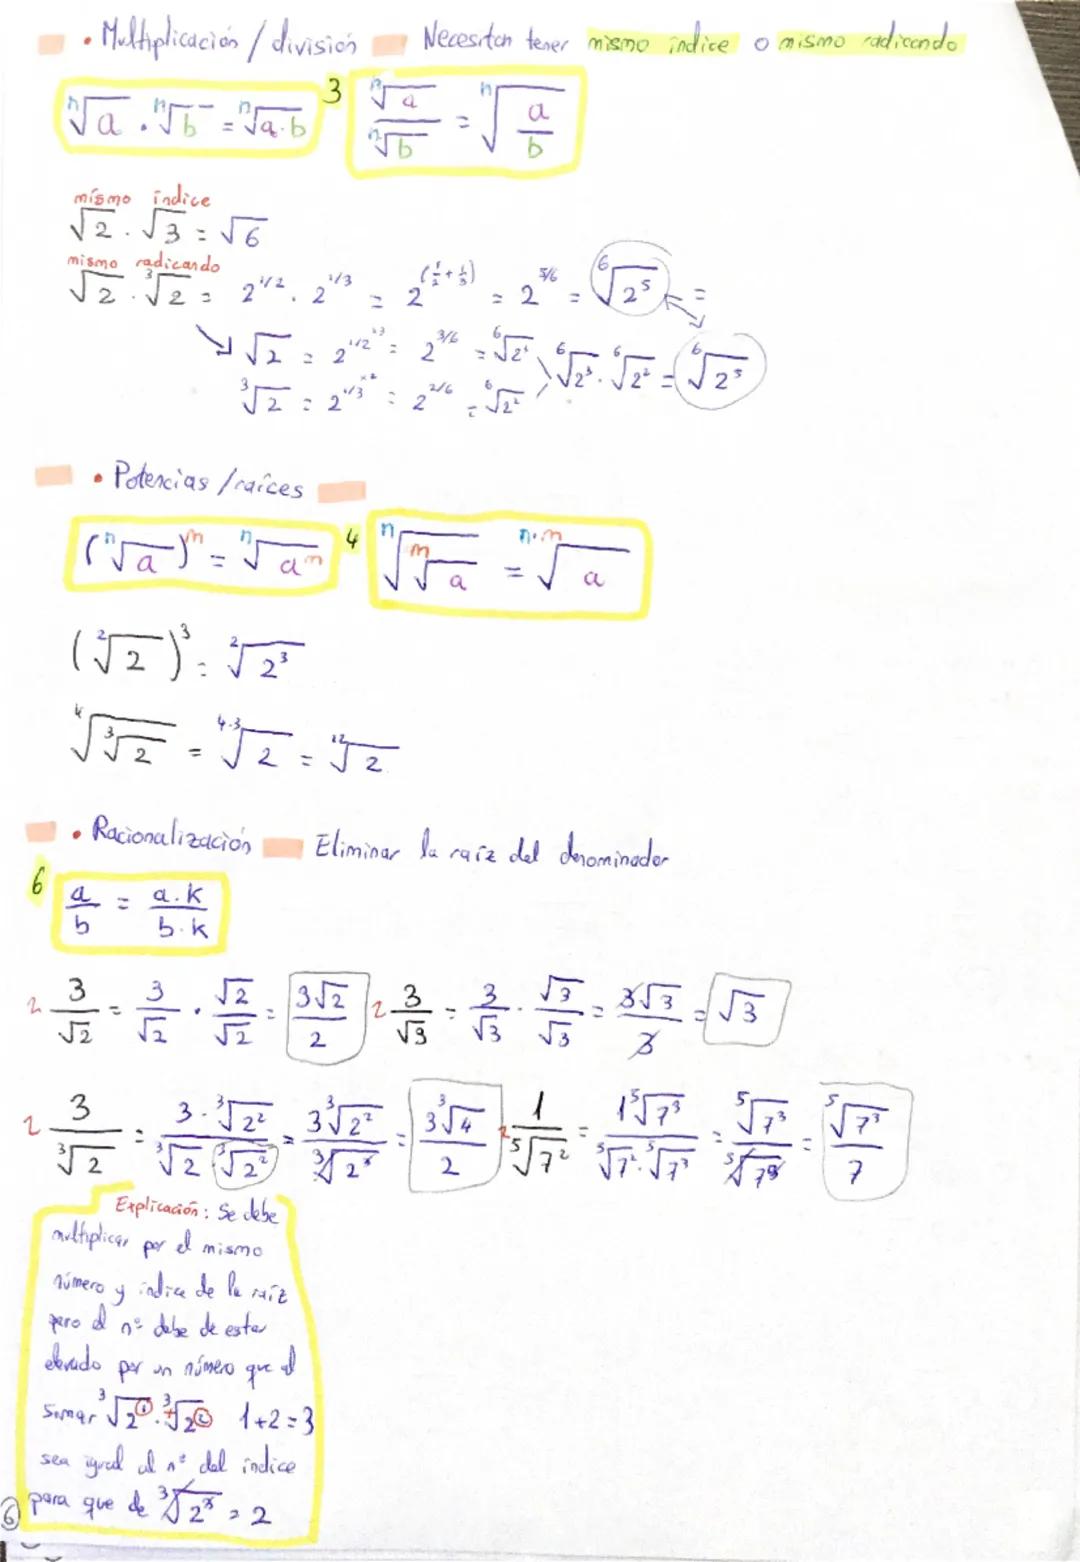 • Multiplicación / división Necesitan tener mismo índice o mismo radicando
ⁿ√a · ⁿ√b = ⁿ√a·b 3 ⁿ√a / ⁿ√b = ⁿ√(a/b)
mismo índice
√2 · √3 = √6
mismo radicando
√2 · ³√2 = 2^1/2 · 2^1/3 = 2^(1/2 + 1/3) = 2^5/6 = ⁶√2⁵ =
√2 = 2^1/2 ^×3 = 2^3/6 = ⁶√2³ ⁶√2³ · ⁶√2² = ⁶√2⁵
³√2 = 2^1/3 ^×2 = 2^2/6 = ⁶√2²
• Potencias / raíces
(ⁿ√a)^m = ⁿ√a^m 4 ⁿ√ᵐ√a = ⁿ·ᵐ√a
(²√2)³ = ²√2³
⁴√³√2 = ⁴·³√2 = ¹²√2
• Racionalización Eliminar la raíz del denominador
6 a/b = a.k/b.k
2 3/√2 = 3/√2 · √2/√2 = 3√2/2 2 3/√3 = 3/√3 · √3/√3 = 3√3/3 = √3
2 3/³√2 = 3·³√2²/³√2 ³√2² = 3³√2²/³√2³ = 3³√4/2 2 1/⁵√7² = 1⁵√7³/⁵√7²·⁵√7³ = ⁵√7³/⁵√7⁵ = ⁵√7³/7
Explicación: Se debe
multiplicar por el mismo
número y índice de la raíz
pero el nº debe de estar
elevado por un número que al
sumar ³√2① · ³√2② + 1+2=3
sea igual al nº del índice
para que de ³√2³ = 2
6